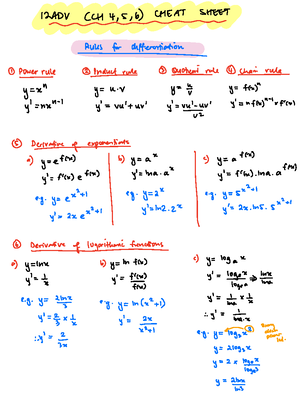 12ADV (CH 4, 5, 6) CHEAT SHEET
Rules for differentiation
① Power rule
y = xⁿ
y' = nxⁿ⁻¹
② Product rule
y = u·v
y' = vu' + uv'
③ Quotient rule
y = u/v
y' = (vu' - uv')/v²
④ Chain rule
y = f(x)ⁿ
y' = n f(x)ⁿ⁻¹ × f'(x)
⑤ Derivative of exponentials
a) y = e^f(x)
y' = f'(x) e^f(x)
e.g. y = e^(x²+1)
y' = 2x e^(x²+1)
b) y = aˣ
y' = lna·aˣ
e.g. y = 2ˣ
y' = ln2·2ˣ
c) y = a^f(x)
y' = f'(x).lna.a^f(x)
e.g. y = 5^(x²+1)
y' = 2x.ln5.5^(x²+1)
⑥ Derivative of logarithmic functions
a) y = lnx
y' = 1/x
e.g. y = 2lnx/3
y' = 2/3 × 1/x
∴ y' = 2/3x
b) y = ln f(x)
y' = f'(x)/f(x)
e.g. y = ln(x²+1)
y' = 2x/(x²+1)
c) y = logₐx
y' = ⇒ lnx/lna
y' = 1/lna × 1/x
∴ y' = 1/(lna·x)
e.g. y = log₃x²
y = 2log₃x
y = 2 ×
y = 2lnx/ln3